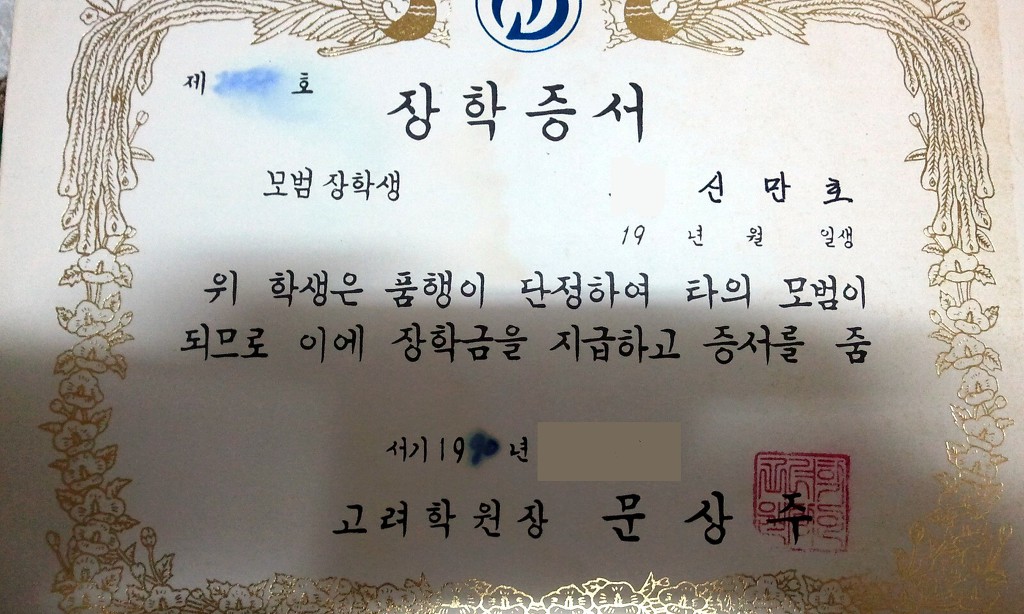 제 호
장학증서
모범 장학생 신만호
19 년 월 일생
위 학생은 품행이 단정하여 타의 모범이
되므로 이에 장학금을 지급하고 증서를 줌
서기 1990년
고려학원장 문상주